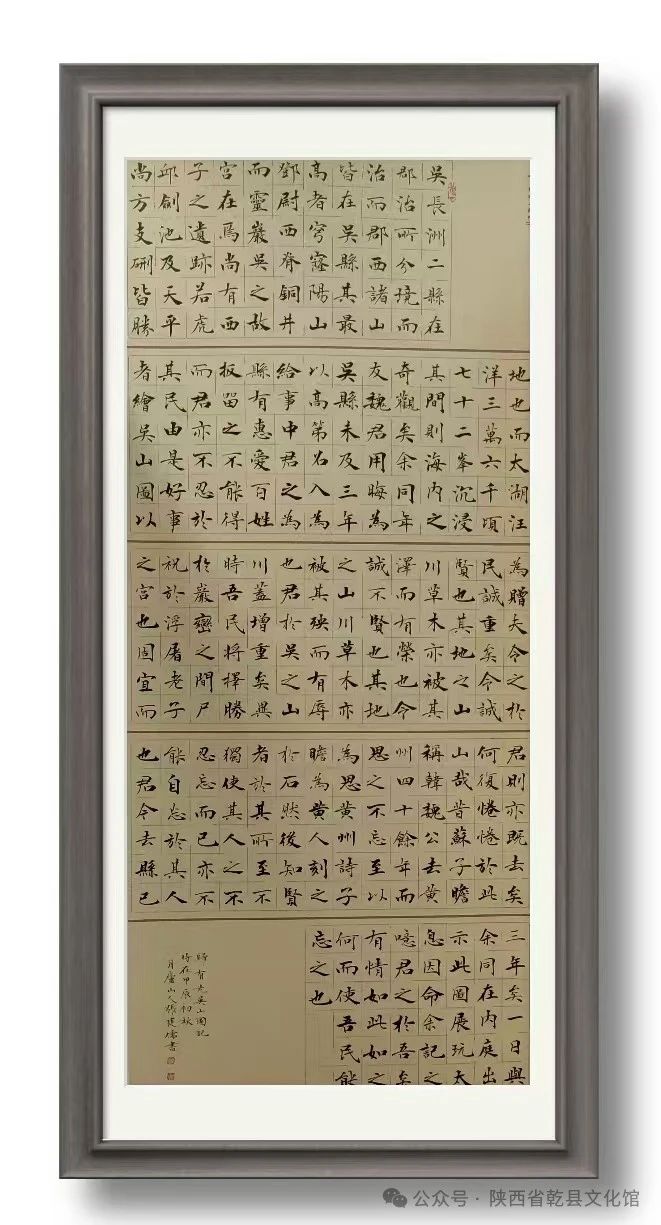 吳長洲二縣在
郡治所分境而
治而郡西諸山
皆在吳縣其最
高者穹窿陽山
鄧尉西脊銅井
而靈巖吳之故
宮在焉尚有西
子之遺跡若虎
邱劍池及天平
尚方支硎皆勝
地也而太湖汪
洋三萬六千頃
七十二峯沉浸
其間則海內之
奇觀矣余同年
友魏君用晦為
吳縣未及三年
以高第名入為
給事中君之為
縣有惠愛百姓
扳留之不能得
而君亦不忍於
其民由是好事
者繪吳山圖以
為贈夫令之於
民誠重矣令誠
賢也其地之山
川草木亦被其
澤而有榮也令
誠不賢也其地
之山川草木亦
被其殃而有辱
也君於吳之山
川蓋增重矣異
時吾民將擇勝
於巖巒之間尸
祝於浮屠老子
之宮也固宜而
君則亦既去矣
何復惓惓於此
山哉昔蘇子瞻
稱韓魏公去黃
州四十餘年而
思之不忘至以
為思黃州詩子
瞻為黃人刻之
於石然後知賢
者於其所至不
獨使其人之不
忍忘而已亦不
能自忘於其人
也君今去縣已
三年矣一日與
余同在內庭出
示此圖展玩太
息因命余記之
噫君之於吾吳
有情如此如之
何而使吾民能
忘之也
歸有光吳山圖記
時在甲辰初秋
月廬山人張書
公众号·陕西省乾县文化馆